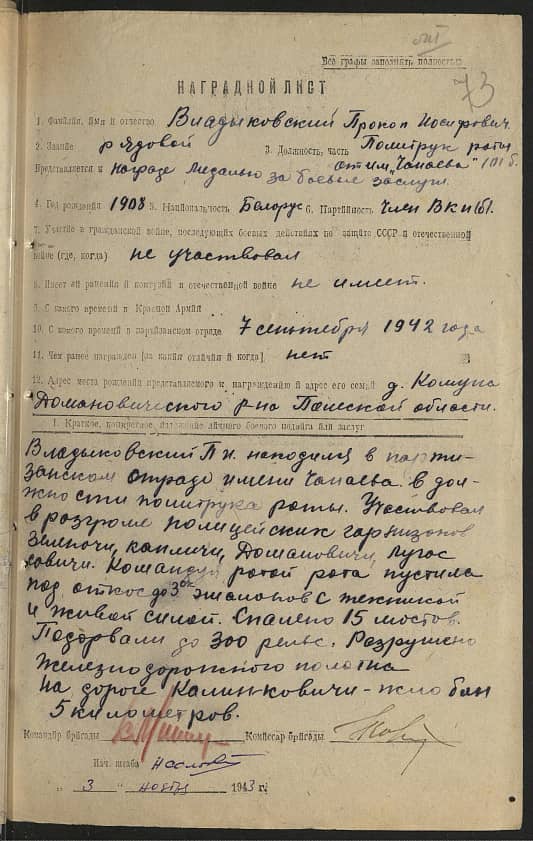 Все графы заполнять полностью
73
НАГРАДНОЙ ЛИСТ
1. Фамилия, имя и отчество Владыковский Прокоп Иосифович.
2. Звание рядовой 3. Должность, часть Политрук роты
отр им. "Чапаева" 101 б.
Представляется к награде Медалью за боевые заслуги
4. Год рождения 1908 5. Национальность Белорус 6. Партийность Член ВКП(б).
7. Участие в гражданской войне, последующих боевых действиях по защите СССР и отечественной
войне (где, когда) не участвовал
8. Имеет ли ранения и контузии в отечественной войне не имеет.
9. С какого времени в Красной Армии
10. С какого времени в партизанском отряде 7 сентября 1942 года
11. Чем ранее награжден [за какия отличия и когда]. нет
12. Адрес места рождения представляемого к награждению и адрес его семьи д. Комуна
Домановического р-на Полесской области.
1. Краткое, конкретное изложение личного боевого подвига или заслуг
Владыковский П и. находился в парти-
занском отряде имени Чапаева в дол-
жности политрука роты. Участвовал
в розгроме полицейских гарнизонов
Зеленочи, капличи, Домановичи,
ковичи. Командуя ротой рота пустила
под откос до 3ох эшалонов с техникой
и живой силой. Спалено 15 мостов.
Подорвали до 300 рельс. Разрушено
железнодорожного полотна
на дороге Калинковичи - жлобин
5 километров.
Командир бригады Комиссар бригады
Нач. штаба
„ 3 " ноября 1943 г.